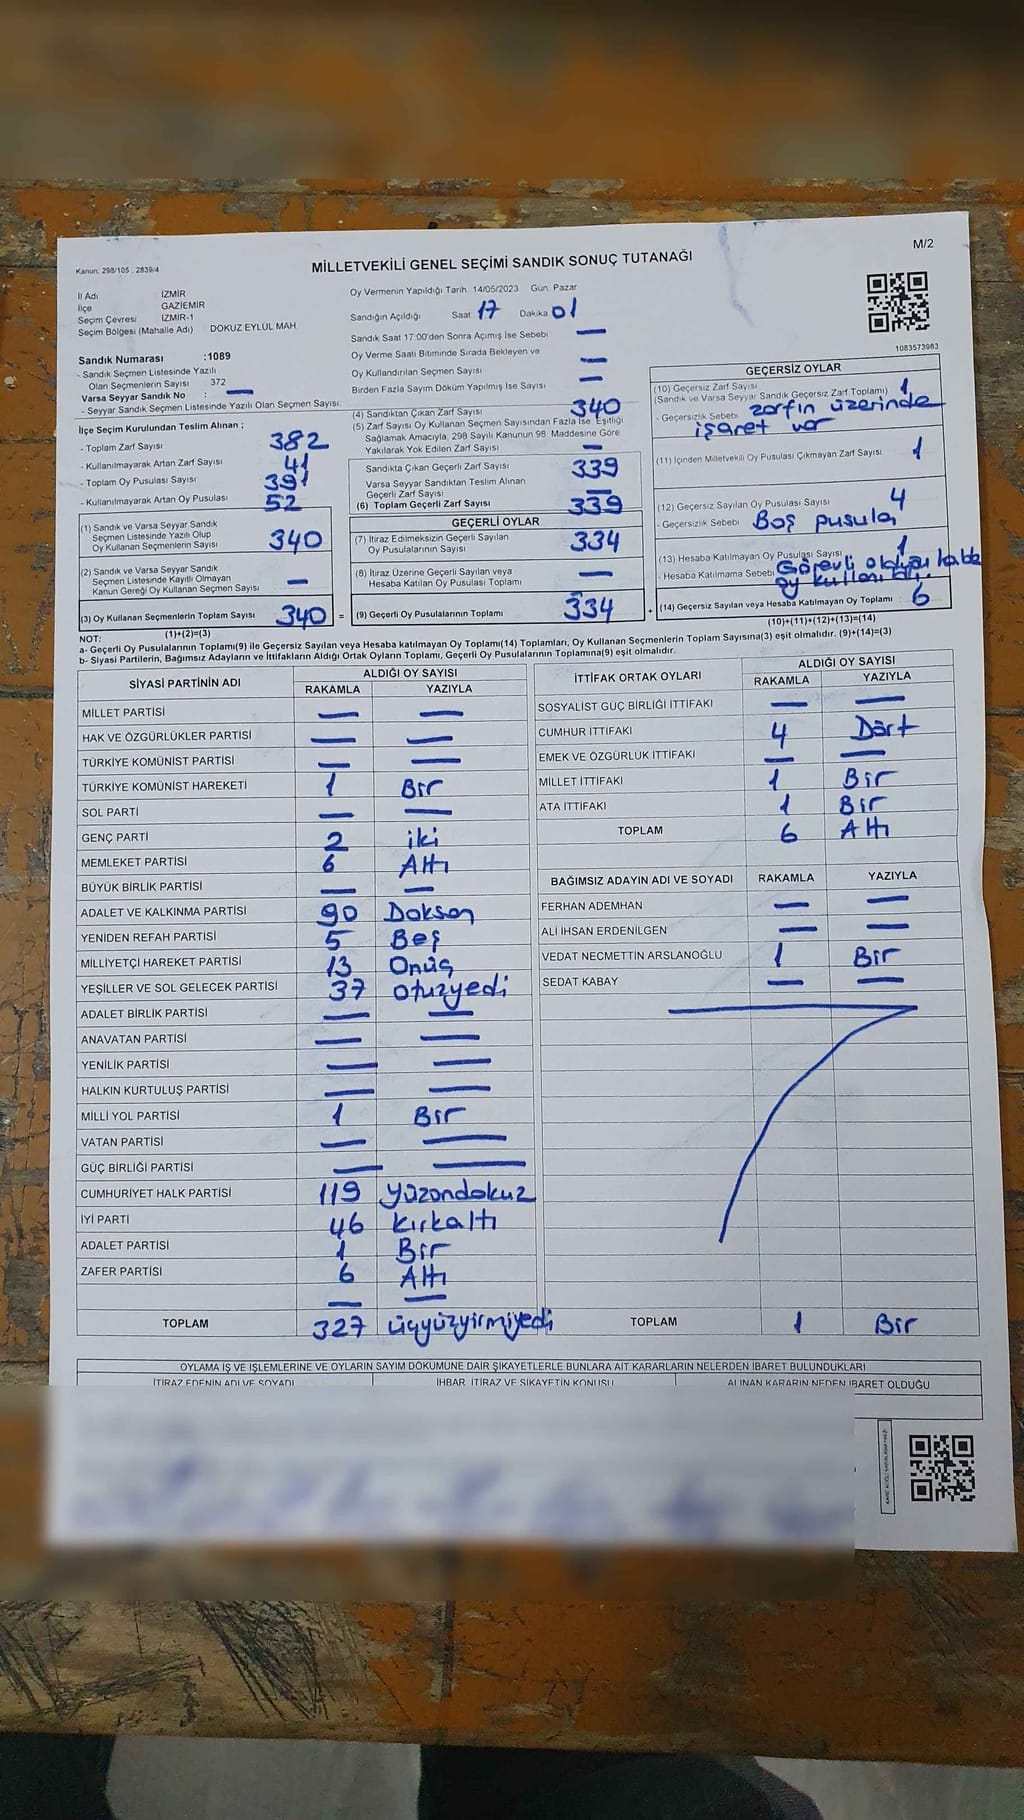 M/2
Kanun: 298/105 , 2839/4
MİLLETVEKİLİ GENEL SEÇİMİ SANDIK SONUÇ TUTANAĞI
İl Adı İZMİR
İlçe GAZİEMİR
Seçim Çevresi İZMİR-1
Seçim Bölgesi (Mahalle Adı) DOKUZ EYLÜL MAH.
Sandık Numarası :1089
- Sandık Seçmen Listesinde Yazılı
Olan Seçmenlerin Sayısı 372
Varsa Seyyar Sandık No : —
- Seyyar Sandık Seçmen Listesinde Yazılı Olan Seçmen Sayısı:
İlçe Seçim Kurulundan Teslim Alınan ;
- Toplam Zarf Sayısı 382
- Kullanılmayarak Artan Zarf Sayısı 41
- Toplam Oy Pusulası Sayısı 391
- Kullanılmayarak Artan Oy Pusulası 52
(1) Sandık ve Varsa Seyyar Sandık
Seçmen Listesinde Yazılı Olup
Oy Kullanan Seçmenlerin Sayısı 340
(2) Sandık ve Varsa Seyyar Sandık
Seçmen Listesinde Kayıtlı Olmayan
Kanun Gereği Oy Kullanan Seçmenler —
(3) Oy Kullanan Seçmenlerin Toplam Sayısı 340 =
(1)+(2)=(3)
Oy Vermenin Yapıldığı Tarih 14/05/2023 Gün: Pazar
Sandığın Açıldığı Saat: 17 Dakika: 01
Sandık Saat 17:00'den Sonra Açılmış İse Sebebi —
Oy Verme Saati Bitiminde Sırada Bekleyen ve
Oy Kullandırılan Seçmen Sayısı —
Birden Fazla Sayım Döküm Yapılmış İse Sayısı —
(4) Sandıktan Çıkan Zarf Sayısı 340
(5) Zarf Sayısı Oy Kullanan Seçmen Sayısından Fazla İse, Eşitliği
Sağlamak Amacıyla, 298 Sayılı Kanunun 98. Maddesine Göre
Yakılarak Yok Edilen Zarf Sayısı —
Sandıkta Çıkan Geçerli Zarf Sayısı 339
Varsa Seyyar Sandıktan Teslim Alınan
Geçerli Zarf Sayısı —
(6) Toplam Geçerli Zarf Sayısı 339
GEÇERLİ OYLAR
(7) İtiraz Edilmeksizin Geçerli Sayılan
Oy Pusulalarının Sayısı 334
(8) İtiraz Üzerine Geçerli Sayılan veya
Hesaba Katılan Oy Pusulası Toplamı —
(9) Geçerli Oy Pusulalarının Toplamı 334 +
1083573983
GEÇERSİZ OYLAR
(10) Geçersiz Zarf Sayısı
(Sandık ve Varsa Seyyar Sandık Geçersiz Zarf Toplamı) 1
- Geçersizlik Sebebi zarfın üzerinde
işaret var
(11) İçinden Milletvekili Oy Pusulası Çıkmayan Zarf Sayısı 1
(12) Geçersiz Sayılan Oy Pusulası Sayısı 4
- Geçersizlik Sebebi Boş pusula
(13) Hesaba Katılmayan Oy Pusulası Sayısı 1
- Hesaba Katılmama Sebebi Görevli olduğu halde
oy kullanıldı.
(14) Geçersiz Sayılan veya Hesaba Katılmayan Oy Toplamı : 6
(10)+(11)+(12)+(13)=(14)
NOT:
a- Geçerli Oy Pusulalarının Toplamı(9) ile Geçersiz Sayılan veya Hesaba katılmayan Oy Toplamı(14) Toplamları, Oy Kullanan Seçmenlerin Toplam Sayısına(3) eşit olmalıdır. (9)+(14)=(3)
b- Siyasi Partilerin, Bağımsız Adayların ve İttifakların Aldığı Ortak Oyların Toplamı, Geçerli Oy Pusulalarının Toplamına(9) eşit olmalıdır.
SİYASİ PARTİNİN ADI ALDIĞI OY SAYISI
RAKAMLA YAZIYLA
MİLLET PARTİSİ — —
HAK VE ÖZGÜRLÜKLER PARTİSİ — —
TÜRKİYE KOMÜNİST PARTİSİ — —
TÜRKİYE KOMÜNİST HAREKETİ 1 Bir
SOL PARTİ — —
GENÇ PARTİ 2 iki
MEMLEKET PARTİSİ 6 Altı
BÜYÜK BİRLİK PARTİSİ — —
ADALET VE KALKINMA PARTİSİ 90 Doksan
YENİDEN REFAH PARTİSİ 5 Beş
MİLLİYETÇİ HAREKET PARTİSİ 13 Onüç
YEŞİLLER VE SOL GELECEK PARTİSİ 37 otuzyedi
ADALET BİRLİK PARTİSİ — —
ANAVATAN PARTİSİ — —
YENİLİK PARTİSİ — —
HALKIN KURTULUŞ PARTİSİ — —
MİLLİ YOL PARTİSİ 1 Bir
VATAN PARTİSİ — —
GÜÇ BİRLİĞİ PARTİSİ — —
CUMHURİYET HALK PARTİSİ 119 yüzondokuz
İYİ PARTİ 46 kırkaltı
ADALET PARTİSİ 1 Bir
ZAFER PARTİSİ 6 Altı
— —
TOPLAM 327 üçyüzyirmiyedi
İTTİFAK ORTAK OYLARI ALDIĞI OY SAYISI
RAKAMLA YAZIYLA
SOSYALİST GÜÇ BİRLİĞİ İTTİFAKI — —
CUMHUR İTTİFAKI 4 Dört
EMEK VE ÖZGÜRLÜK İTTİFAKI — —
MİLLET İTTİFAKI 1 Bir
ATA İTTİFAKI 1 Bir
TOPLAM 6 Altı
BAĞIMSIZ ADAYIN ADI VE SOYADI RAKAMLA YAZIYLA
FERHAN ADEMHAN — —
ALİ İHSAN ERDENİLGEN — —
VEDAT NECMETTİN ARSLANOĞLU 1 Bir
SEDAT KABAY — —
TOPLAM 1 Bir
OYLAMA İŞ VE İŞLEMLERİNE VE OYLARIN SAYIM DÖKÜMÜNE DAİR ŞİKAYETLERLE BUNLARA AİT KARARLARIN NELERDEN İBARET BULUNDUKLARI
İTİRAZ EDENİN ADI VE SOYADI İHBAR, İTİRAZ VE ŞİKAYETİN KONUSU ALINAN KARARIN NEDEN İBARET OLDUĞU